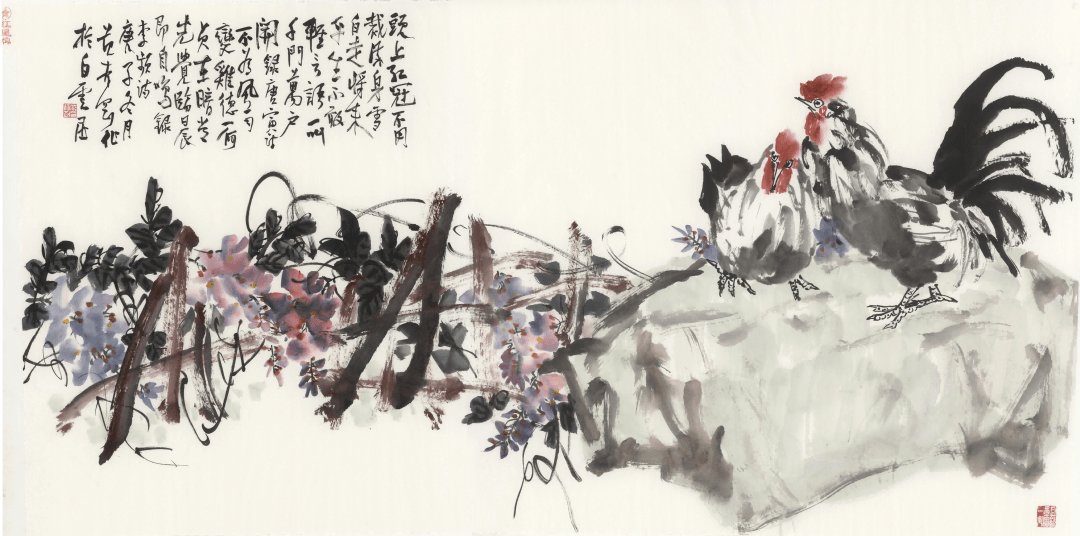 頭上紅冠不用
裁滿身雪
白走將來
平生不敢
輕言語一叫
千門萬戶
開錄唐寅詩
不為風雨
變雞德一何
貞在暗常
先覺臨晨
即自鳴錄
李頻詩
庚子冬月
作
於白雲居